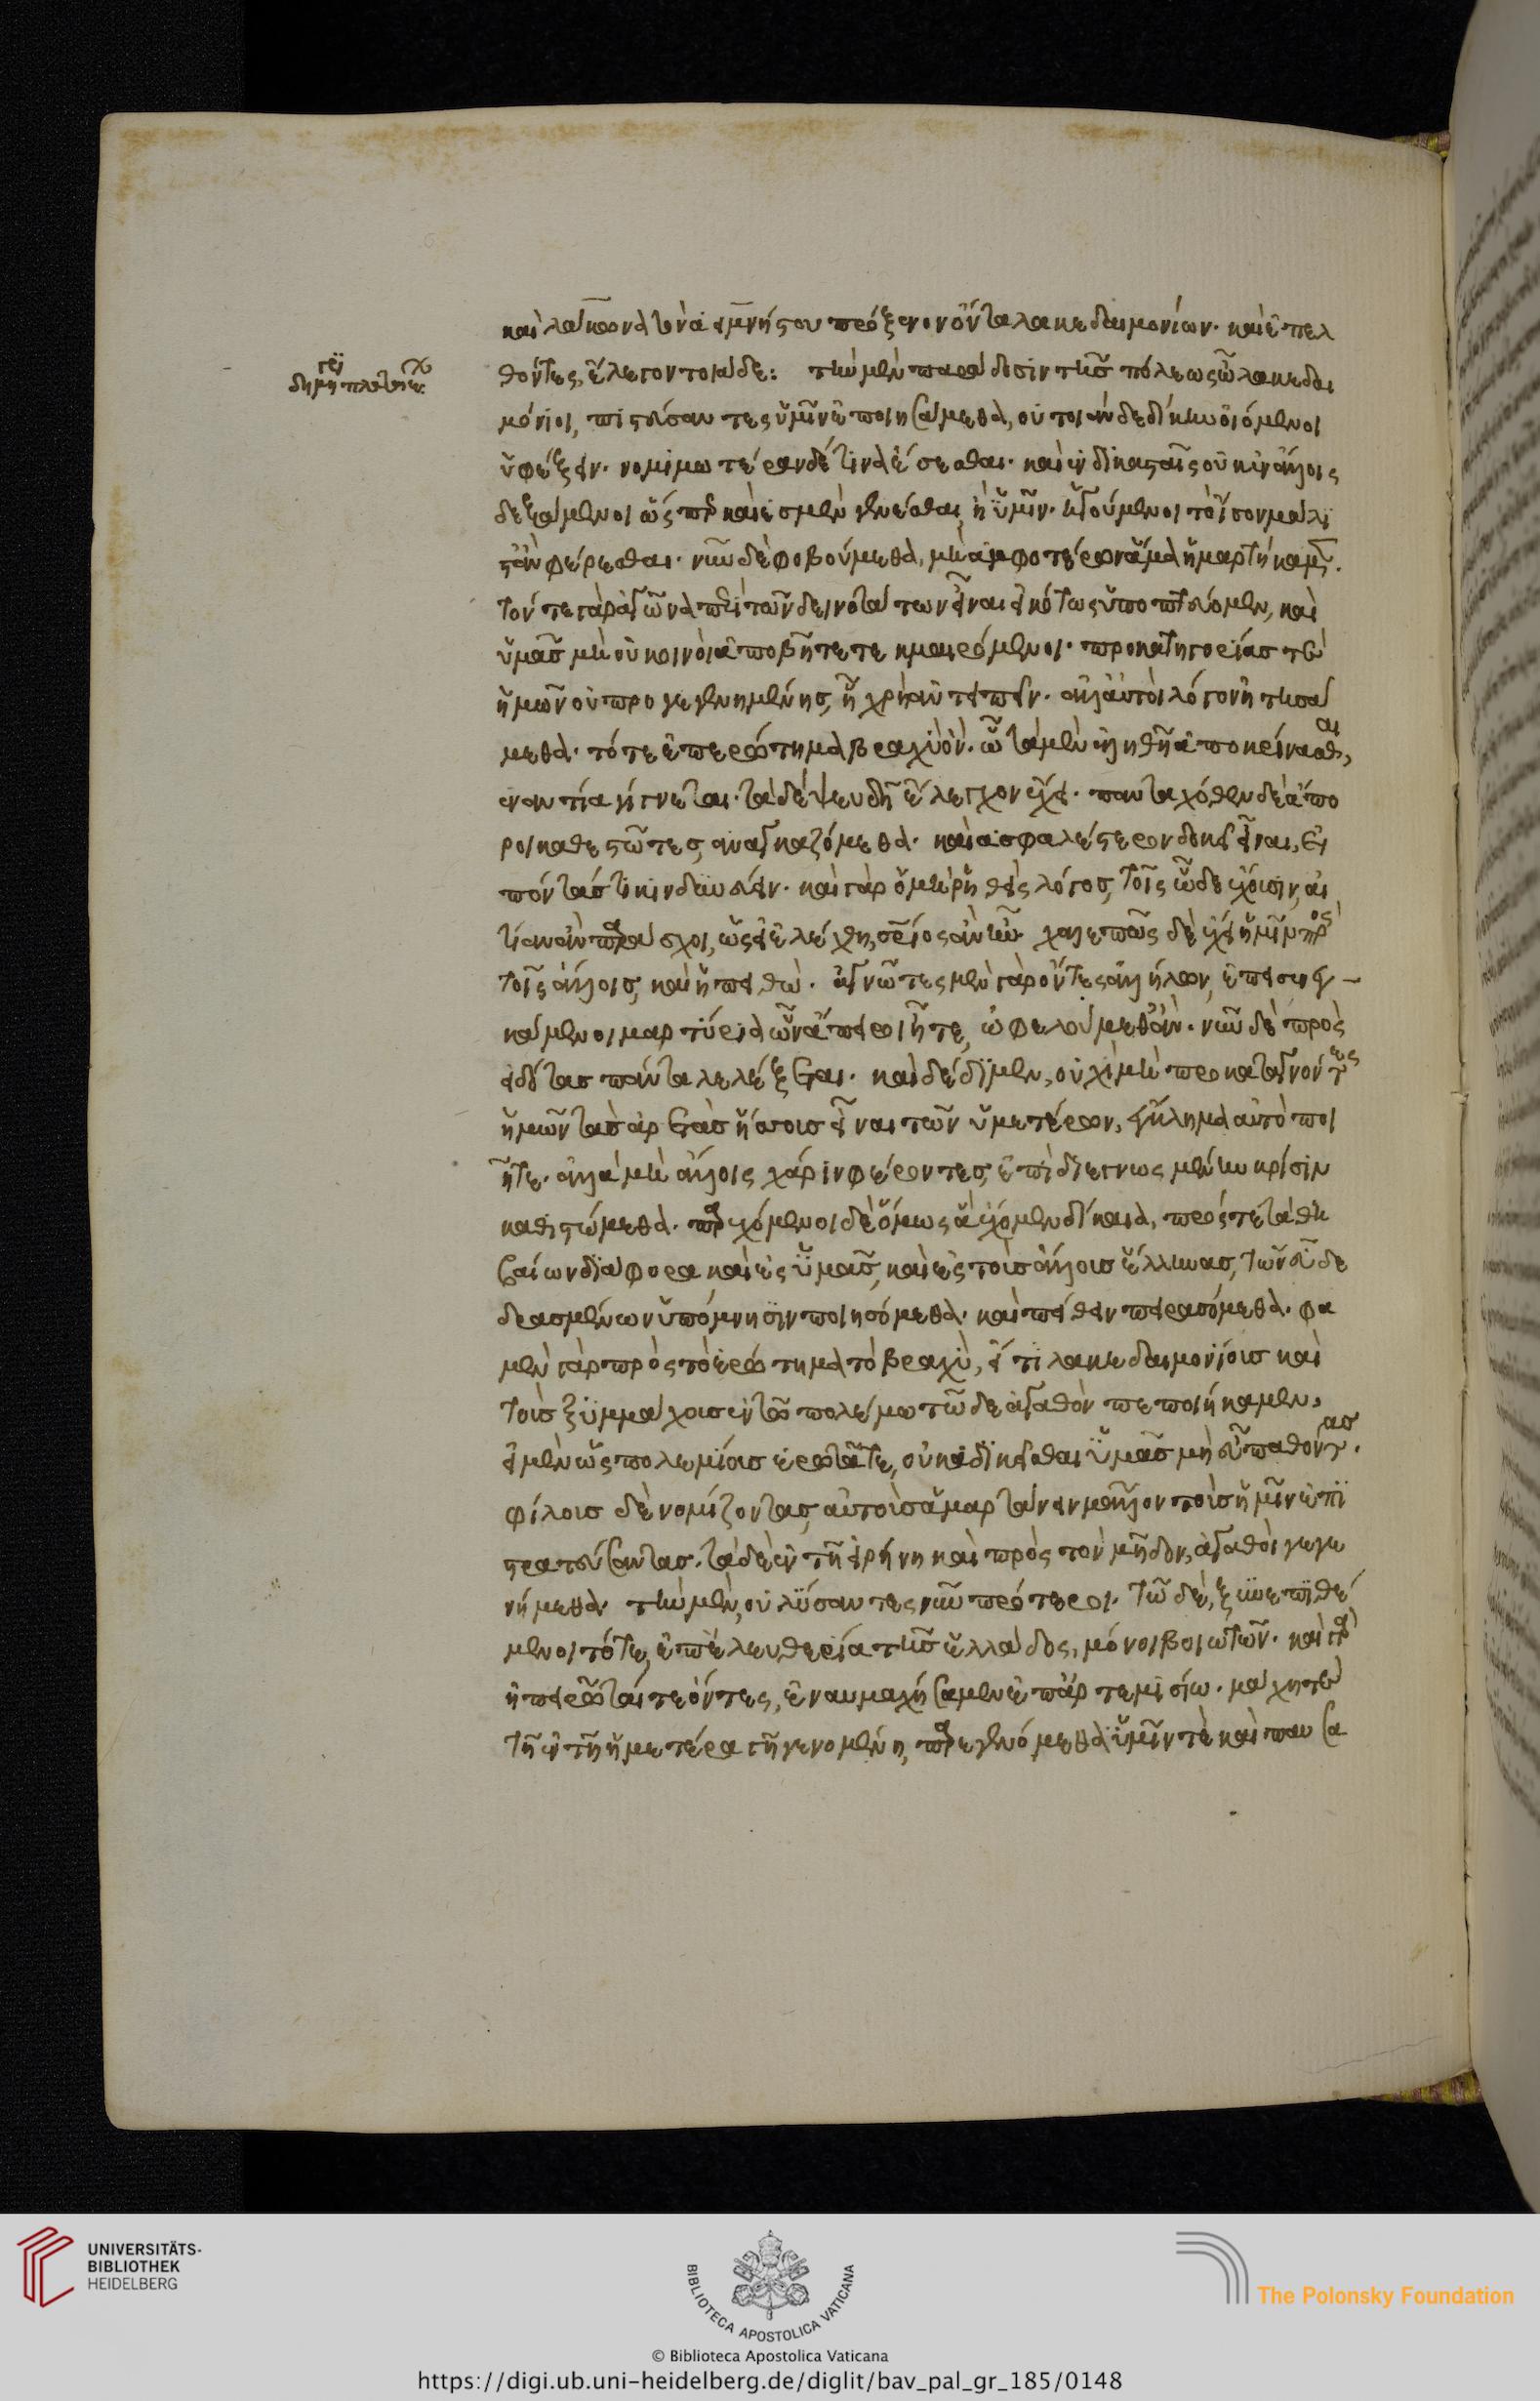 δημηγορ πλαταιέων
καὶ λάκωνα τὸν ἀειμνήστου πρόξενον ὄντα λακεδαιμονίων· καὶ ἐπελ
θόντες, ἔλεγον τοιάδε: τὴν μὲν παράδοσιν τῆς πόλεως ὦ λακεδαι
μόνιοι, πιστεύσαντες ὑμῖν ἐποιησάμεθα, οὐ τοιάνδε δίκην οἰόμενοι
ὑφέξειν· νομιμωτέραν δέ τινα ἔσεσθαι· καὶ ἐν δικασταῖς οὐκ ἐν ἄλλοις
δεξάμενοι ὥσπερ καὶ ἐσμὲν γενέσθαι ἢ ὑμῖν· ἡγούμενοι τὸ ἴσον μάλι
στ' ἂν φέρεσθαι· νῦν δὲ φοβούμεθα, μὴ ἀμφοτέρων ἅμα ἡμαρτήκαμεν.
τόν τε γὰρ ἀγῶνα περὶ τῶν δεινοτάτων εἶναι εἰκότως ὑποπτεύομεν, καὶ
ὑμᾶς μὴ οὐ κοινοὶ ἀποβῆτε τεκμαιρόμενοι· προκατηγορίας τε
ἡμῶν οὐ προγεγενημένης, ᾗ χρὴ ἀντειπεῖν· ἀλλ' αὐτοὶ λόγον ἠτησά
μεθα· τό τε ἐπερώτημα βραχὺ ὄν· ᾧ τὰ μὲν ἀληθῆ ἀποκρίνασθαι,
ἐναντία γίγνεται· τὰ δὲ ψευδῆ ἔλεγχον ἔχει· πανταχόθεν δὲ ἄπο
ροι καθεστῶτες, ἀναγκαζόμεθα· καὶ ἀσφαλέστερον δοκεῖ εἶναι, εἰ
πόντάς τι κινδυνεύειν· καὶ γὰρ ὁ μὴ ῥηθεὶς λόγος, τοῖς ὧδε ἔχουσιν, αἰ
τίαν ἂν παράσχοι, ὡς εἰ ἐλέχθη, σωτήριος ἂν ἦν· χαλεπῶς δὲ ἔχει ἡμῖν πρὸς
τοῖς ἄλλοις, καὶ ἡ πειθώ· ἀγνῶτες μὲν γὰρ ὄντες ἀλλήλων, ἐπεσενεγ
κάμενοι μαρτύρια ὧν ἄπειροι ἦτε, ὠφελούμεθ' ἄν· νῦν δὲ πρὸς
εἰδότας πάντα λελέξεται· καὶ δέδιμεν, οὐχὶ μὴ προκαταγνόντες
ἡμῶν τὰς ἀρετὰς ἥσσους εἶναι τῶν ὑμετέρων, ἔγκλημα αὐτὸ ποι
ῆτε· ἀλλὰ μὴ ἄλλοις χάριν φέροντες, ἐπὶ διεγνωσμένην κρίσιν
καθιστώμεθα· παρεχόμενοι δὲ ὅμως ἃ ἔχομεν δίκαια, πρός τε τὰ θη
βαίων διάφορα καὶ ἐς ὑμᾶς, καὶ ἐς τοὺς ἄλλους ἕλληνας, τῶν εὖ δε
δρασμένων ὑπόμνησιν ποιησόμεθα· καὶ πείθειν πειρασόμεθα· φα
μὲν γὰρ πρὸς τὸ ἐρώτημα τὸ βραχὺ, εἴ τι λακεδαιμονίους καὶ
τοὺς ξυμμάχους ἐν τῷ πολέμῳ τῷδε ἀγαθὸν πεποιήκαμεν,
εἰ μὲν ὡς πολεμίους ἐρωτᾶτε, οὐκ ἀδικεῖσθαι ὑμᾶς μὴ εὖ παθόντας.
φίλους δὲ νομίζοντας, αὐτοὺς ἁμαρτάνειν μᾶλλον τοὺς ἡμῖν ἐπι
στρατεύσαντας· τὰ δ' ἐν τῇ εἰρήνῃ καὶ πρὸς τὸν μῆδον, ἀγαθοὶ γεγε
νήμεθα· τὴν μὲν, οὐ λύσαντες νῦν πρότεροι· τῷ δὲ, ξυνεπιθέ
μενοι τότε, ἐπ' ἐλευθερία τῆς ἑλλάδος, μόνοι βοιωτῶν· καὶ γὰρ
ἠπειρῶταί τε ὄντες, ἐναυμαχήσαμεν ἐπ' ἀρτεμισίω· μάχη τε
τῇ ἐν τῇ ἡμετέρα γῇ γενομένη, παρεγενόμεθα ὑμῖν τὲ καὶ παυσα
UNIVERSITÄTS-
BIBLIOTHEK
HEIDELBERG
BIBLIOTECA APOSTOLICA VATICANA
The Polonsky Foundation
© Biblioteca Apostolica Vaticana
https://digi.ub.uni-heidelberg.de/diglit/bav_pal_gr_185/0148